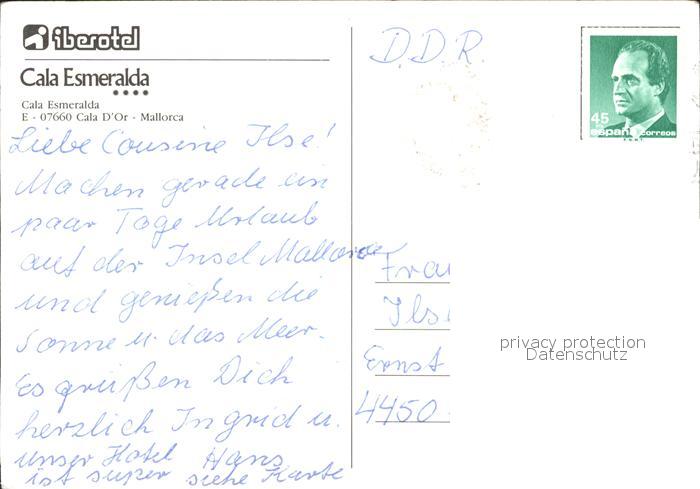 iberotel
Cala Esmeralda
Cala Esmeralda
E - 07660 Cala D'Or - Mallorca
Liebe Cousine Ilse!
Machen gerade ein
paar Tage Urlaub
auf der Insel Mallorca
und genießen die
Sonne u. das Meer.
Es grüßen Dich
herzlich Ingrid u.
Hans
unser Hotel
ist super siehe Karte
D.D.R.
45
españa correos
Frau
Ilse
Ernst
4450
privacy protection
Datenschutz